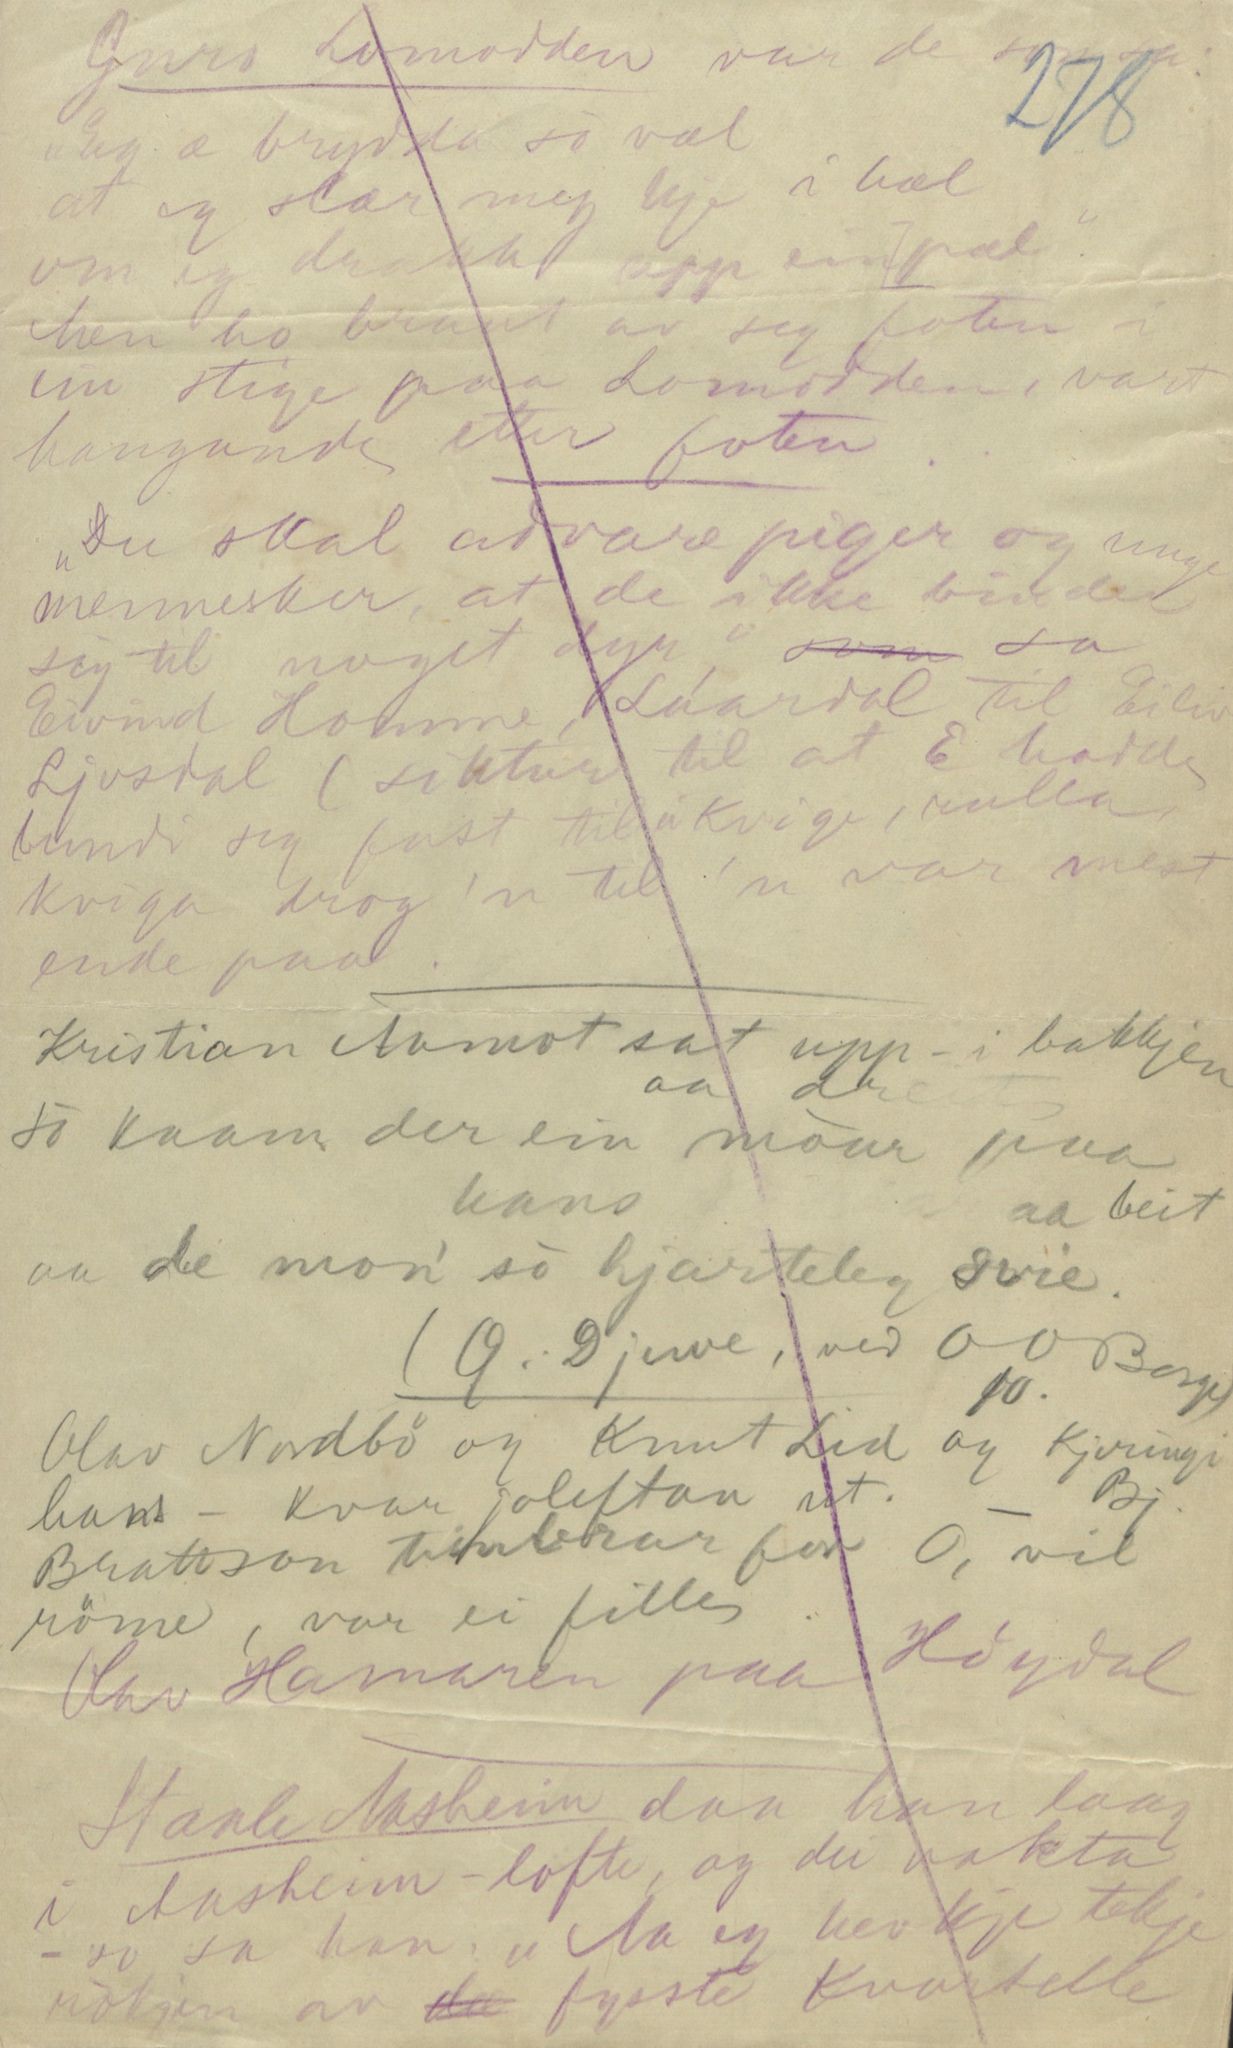 Guro Lomodden var de som sa:
278
"Eg æ brydda so væl
at eg slær meg kje i hæl
om eg drakk upp ein pæl".
Men ho braut av seg foten i
ein stige paa Lomodden, vart
hangande etter foten.
"Du skal advare piger og unge
mennesker, at de ikke binder
sig til noget dyr," som sa
Eivind Homme, Láardal til Eiliv
Ljosdal (siktar til at E hadde
bundi seg fast til ei kvige, rulla,
kviga drog 'n til 'n var mest
ende paa.
Kristian Aamot sat upp-i bakkjen
aa dreit
so kaam der ein maur paa
hans aa beit
aa de mon' so hjarteleg svie.
(Q. Djuve, ved O O Borge)
10.
Olav Nordbö og Knut Lid og kjeringi
hans – kvar joleftan ut. – Bj.
Brattson timbrar for O, vil
röme, var ei fille.
Olav Hamaren paa Höydal
Staale Aasheim daa han laag
i Aasheim-lofte, og dei vakta
– so sa han: "Aa eg hev kje tekje
rökjen av da fysste kvartelle